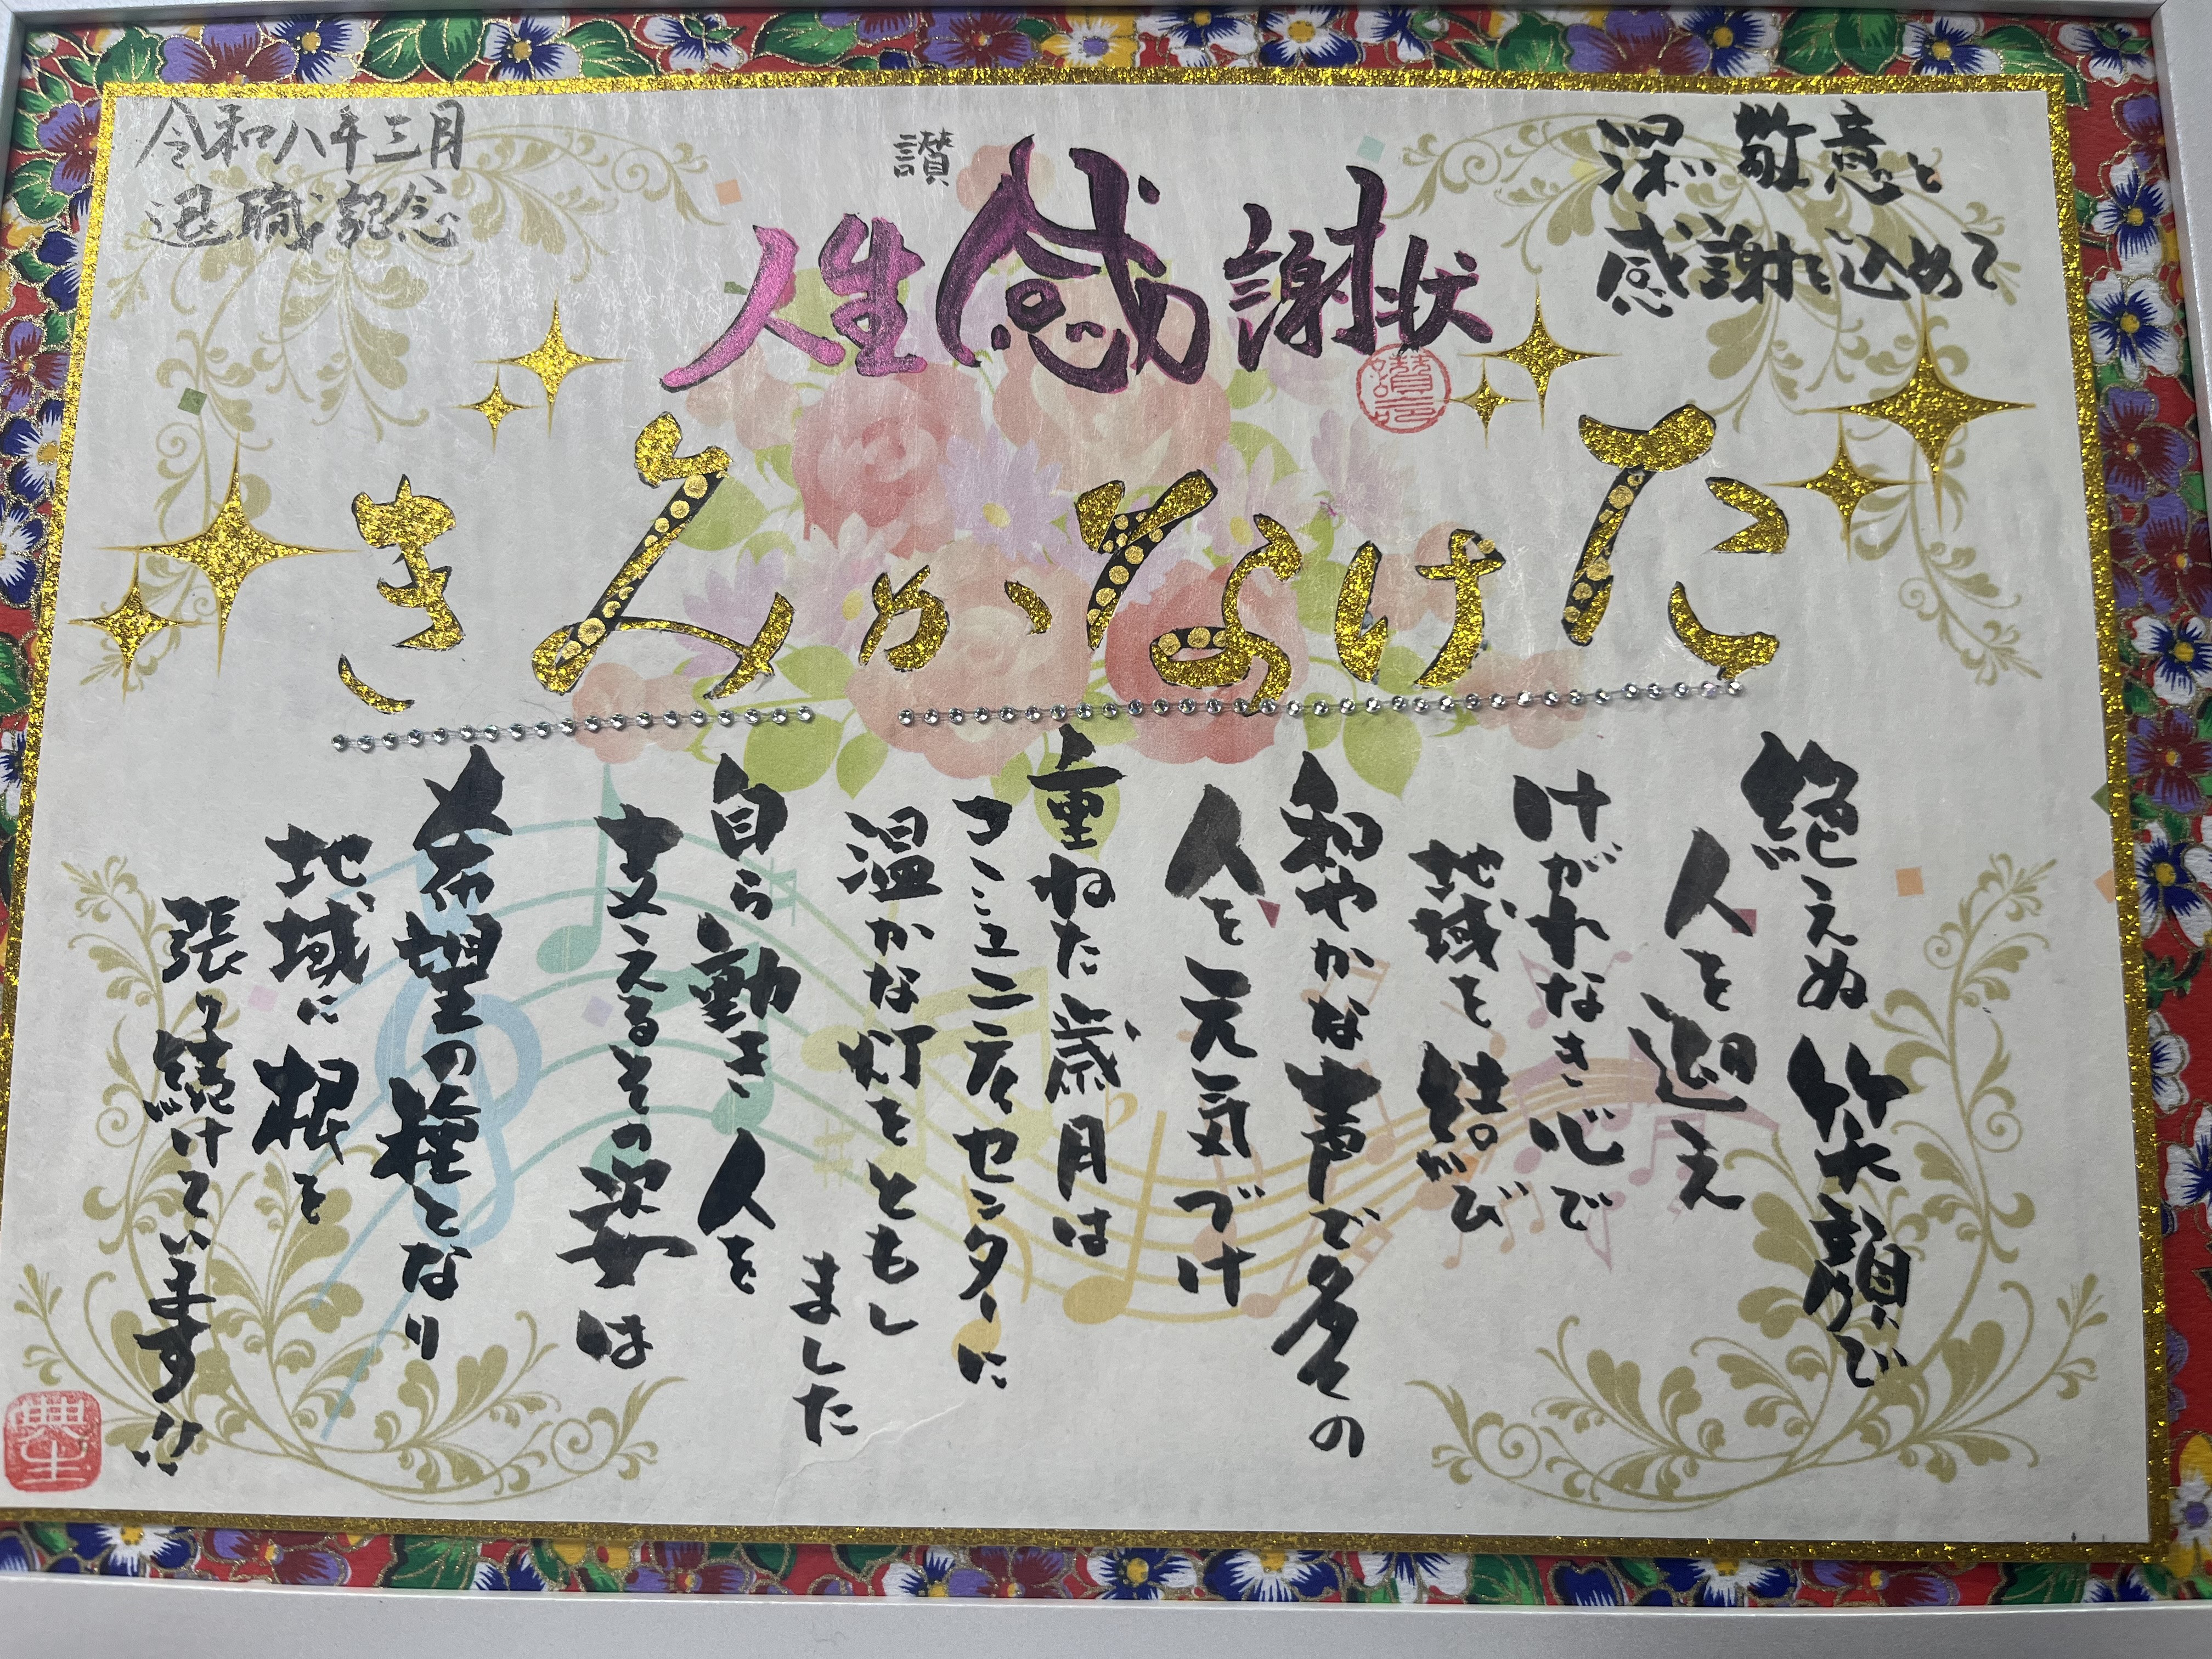 深い敬意と
感謝を込めて
讃
人生感謝状
令和八年三月
退職記念
たけなかみき
絶えぬ笑顔で
人を迎え
けがれなき心で
地域を結び
和やかな声で多くの
人を元気づけ
重ねた歳月は
コミュニティセンターに
温かな灯をともし
ました
自ら動き人を
支えるその姿は
希望の種となり
地域に根を
張り続けています!!
典生